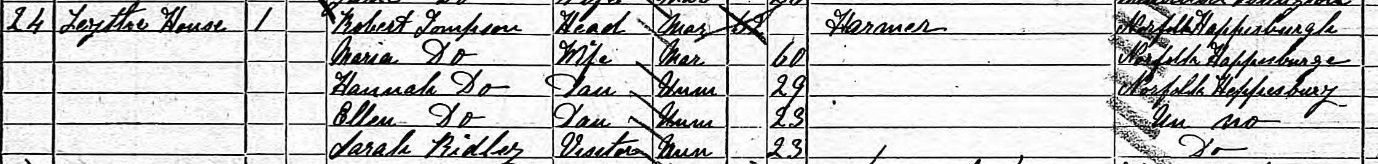 24 House 1 Robert Tompson Head Mar Farmer Norfolk Happesburgh
Maria Do Wife Mar 60 Norfolk Happesburge
Hannah Do Dau Unm 29 Norfolk Heppesbury
Ellen Do Dau Unm 23 Un no
Sarah Ridley Visitor Unm 23 Do